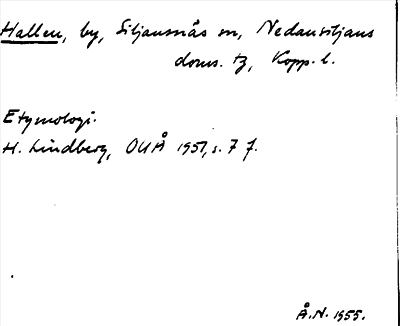 Hallen, by, Siljansnäs sn, Nedansiljans
doms. tz, Kopp. l.
Etymologi.
H. Lindberg, OUÅ 1951, s. 7 f.
Å.N. 1955.